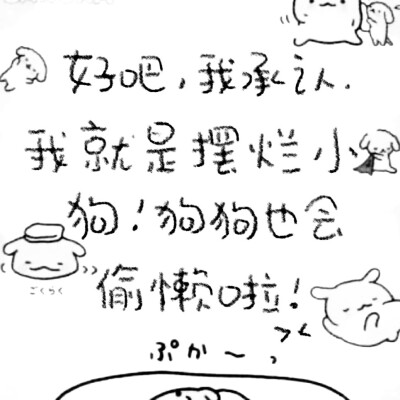 好吧,我承认.
我就是摆烂小
狗!狗狗也会
偷懒啦!
ごくらく
ぷか~